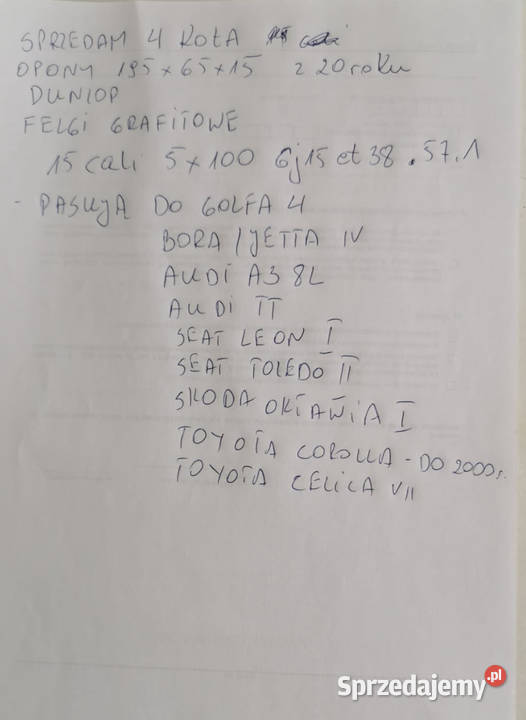 SPRZEDAM 4 KOŁA
OPONY 195 x 65 x 15 z 20 roku
DUNLOP
FELGI GRAFITOWE
15 cali 5 x 100 6j15 et 38 . 57.1
- PASUJĄ DO GOLFA 4
BORA / JETTA IV
AUDI A3 8L
AUDI TT
SEAT LEON I
SEAT TOLEDO II
SKODA OKTAWIA I
TOYOTA COROLLA - DO 2000r.
TOYOTA CELICA VII
Sprzedajemy.pl